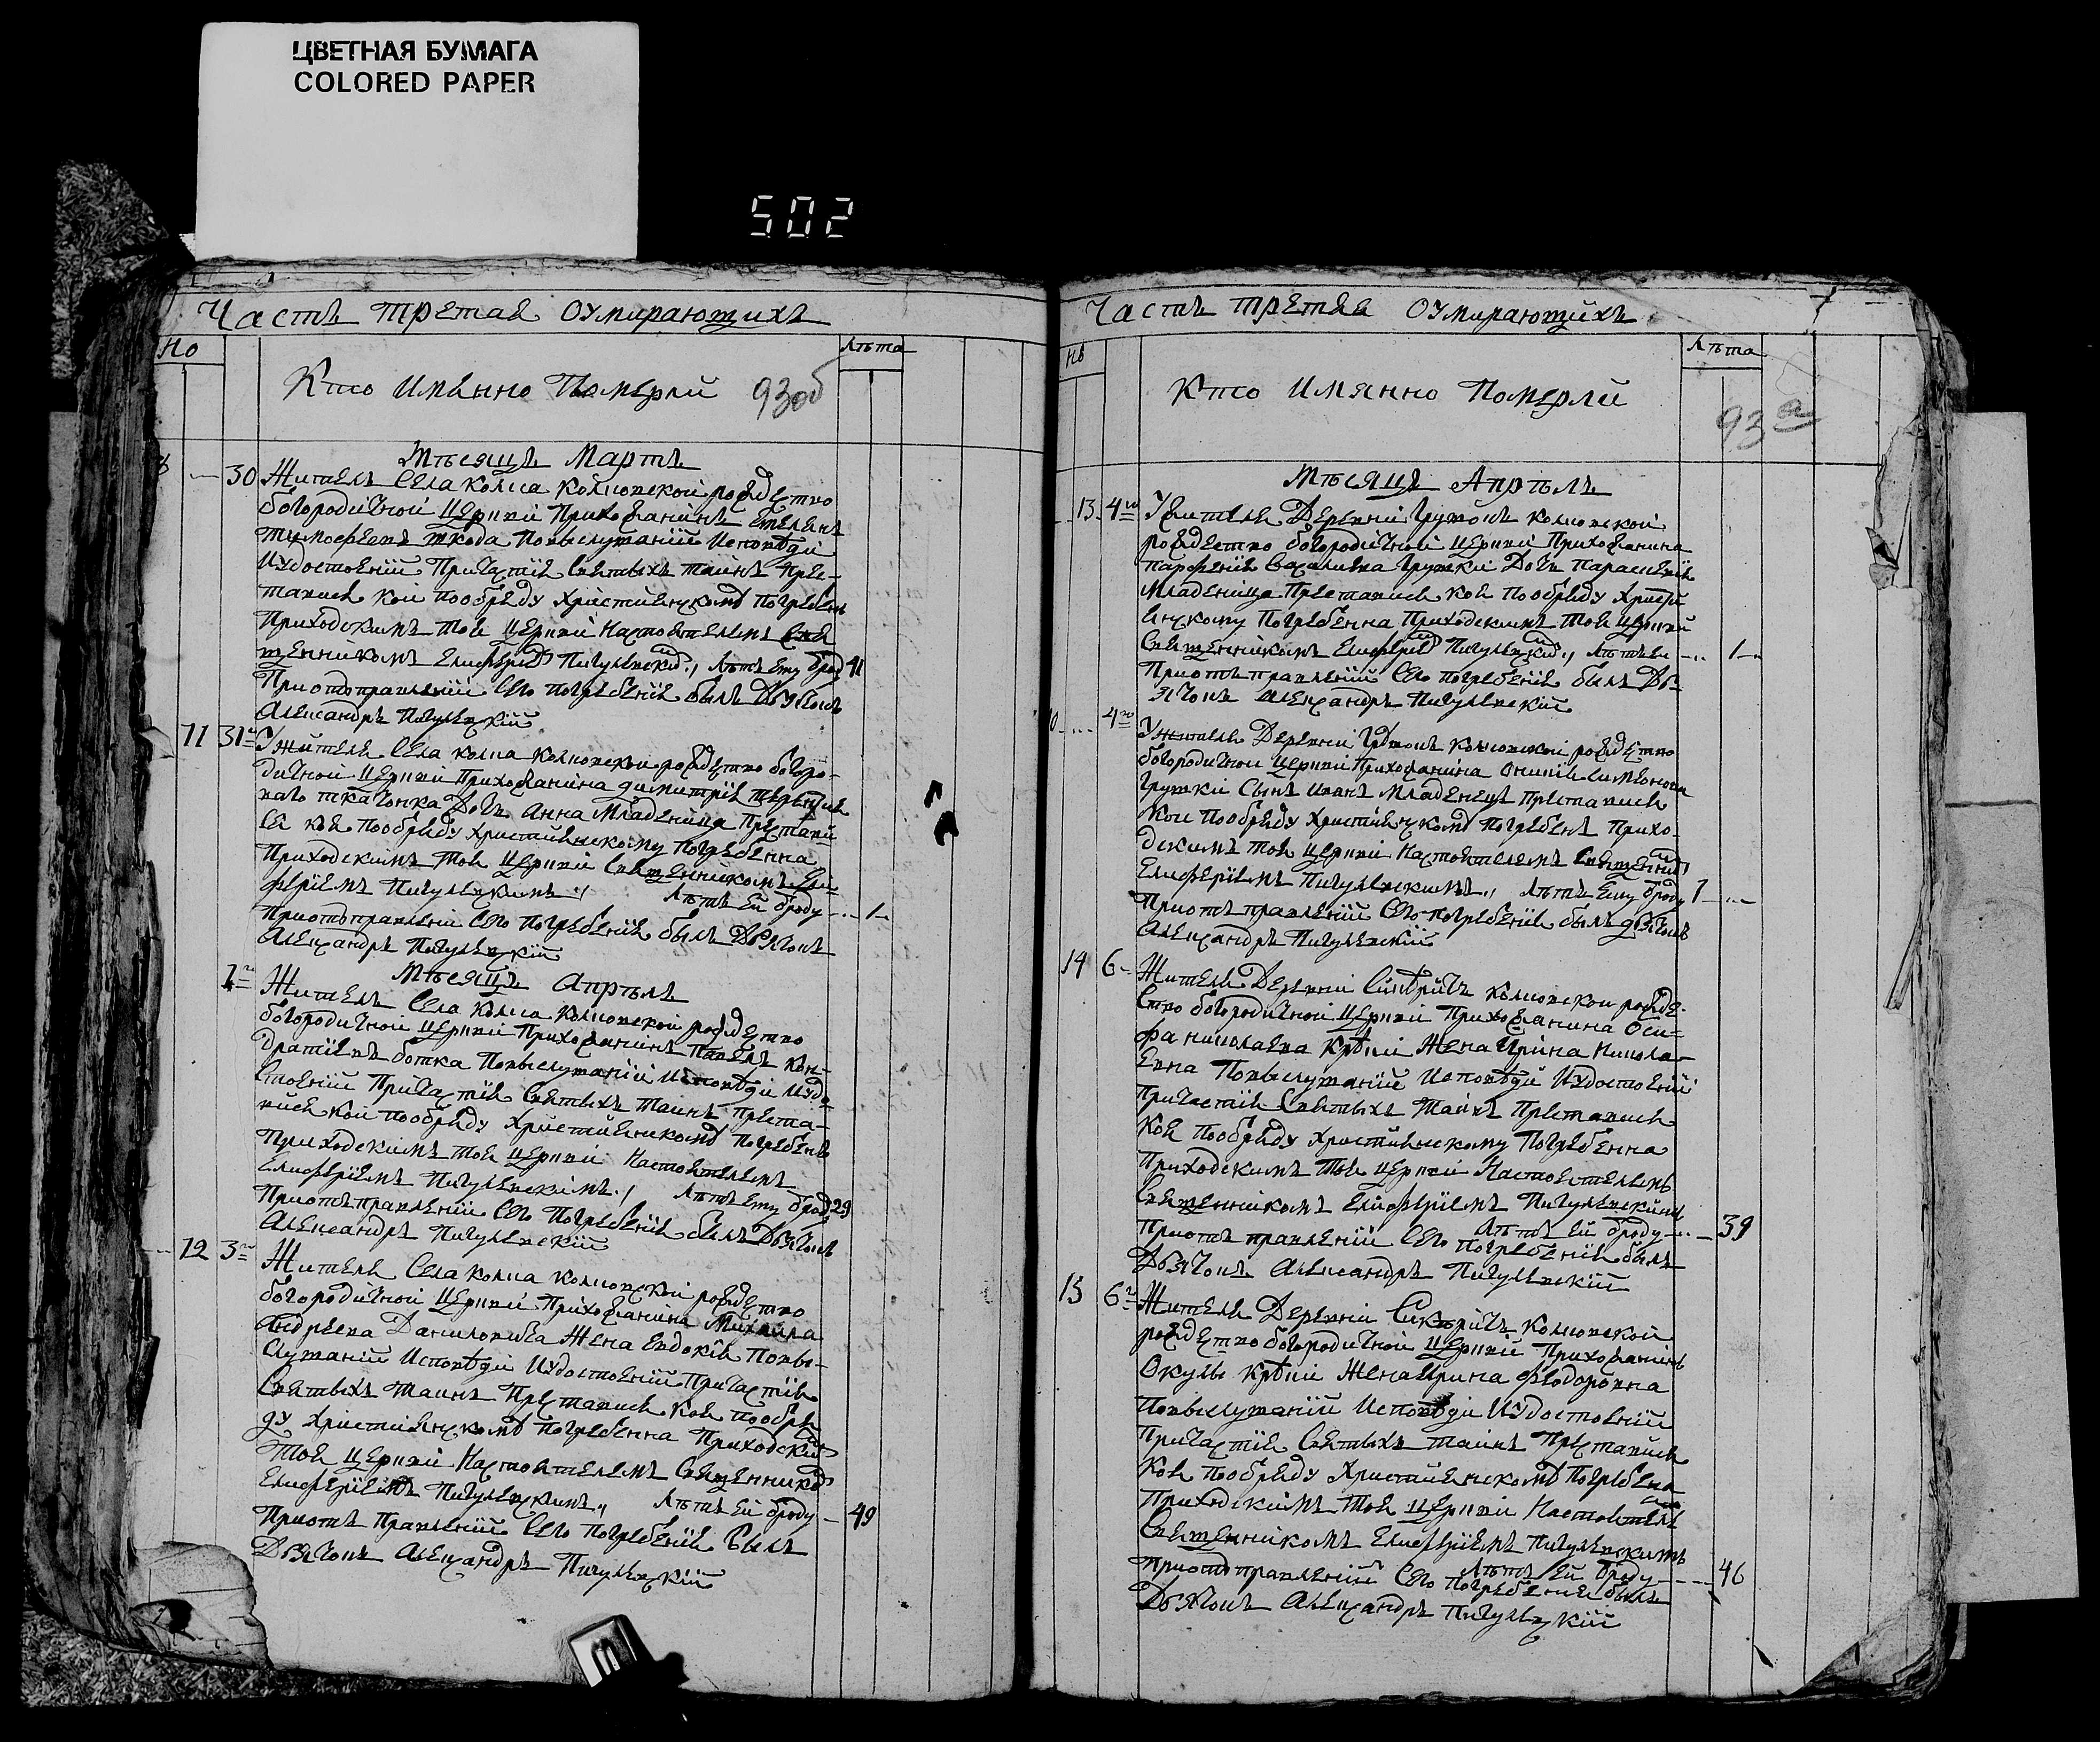 ЦВЕТНАЯ БУМАГА
COLORED PAPER
502
Часть третая оумирающихъ
No
лѣта
Кто имянно Померли 93об
Мѣсяцъ Мартъ
30 Житель Села колпа колповской рождество
богородичной церкви Прихожанинъ
тимофеевъ По выслушаніи Исповѣди
И удостоеніи Причастія святыхъ таинъ Прес-
тавися кой по обряду христіянскому погребенъ
Приходскимъ тоя церкви Настоятелемъ свя
щенникомъ Елиферіемъ Пигулевским // лѣтъ ему ѿроду 41
При отправленіи сего погребенія былъ Дьячокъ
Александръ Пигулевскій
11 31 Жителя Села колпа колповской рождество богоро-
дичной церкви Прихожанина димитрія
ткачонка Дочь Анна Младеница Престави
ся коя по обряду христіянскому погребенна
Приходскимъ тоя церкви Священникомъ Ели-
феріемъ Пигулевскимъ // лѣтъ ей ѿроду 1
При отправлени сего погребенія былъ Дьячокъ
Александръ Пигулевскій
Мѣсяцъ Апрѣль
1 Житель Села колпа колповской рождество
богородичной церкви Прихожанинъ Павелъ Кон-
дратіевъ ботка По выслушаніи Исповѣди И удо-
стоеніи Причастія Святыхъ таинъ Преста-
вися кой по обряду христіянскому погребенъ
Приходскимъ тоя церкви Настоятелемъ
Елиферіемъ Пигулевскимъ // лѣтъ ему ѿроду 29
При отправленіи сего погребенія былъ Дьячокъ
Александръ Пигулевскій
12 3 Жителя Села колпа колповской рождество
богородичной церкви Прихожанина Михаила
Андреева Даниловича Жена Евдокія По вы-
слушаніи Исповѣди И удостоеніи Причастія
Святыхъ таинъ Преставися коя по обря
ду христіянскому погребенна Приходским
тоя церкви Настоятелемъ Священником
Елиферіемъ Пигулевскимъ // лѣтъ ей ѿроду 49
При отправленіи сего погребенія былъ
Дьячокъ Александръ Пигулевскій
Часть третяя оумирающихъ
No
лѣта
Кто имянно Померли
93а
Мѣсяцъ Апрѣль
13 4 Жителя Деревни колповской
рождество богородичной церкви Прихожанина
парфенія Грушки Дочь Параскевія
Младеница Преставися коя по обряду Христи
янскому погребенна Приходскимъ тоя церкви
Священникомъ Елиферіем Пигулевским // лѣтъ 1
При отправленіи сего погребенія былъ Дь-
ячокъ Александръ Пигулевскій
4 Жителя Деревни колповской рождество
богородичной церкви Прихожанина
Грушки Сынъ Иванъ младенецъ Преставися
кой по обряду христіянскому погребенъ Прихо-
дскимъ тоя церкви Настоятелемъ Священником
Елиферіемъ Пигулевскимъ // лѣтъ ему ѿроду 1
При отправленіи сего погребенія былъ дьячокъ
Александръ Пигулевскій
14 6 Жителя Деревни колповской рожде-
ство богородичной церкви Прихожанина Оси-
фа николаева Жена Ирина Никола-
евна По выслушаніи Исповѣди И удостоеніи
Причастія Святыхъ Таинъ Преставися
коя по обряду христіянскому Погребенна
Приходскимъ тоя церкви Настоятелемъ
Священникомъ Елиферіемъ Пигулевскимъ
лѣтъ ей ѿроду 39
При отправленіи сего погребенія былъ
Дьячокъ Александръ Пигулевскій
15 6 Жителя Деревни колповской
рождество богородичной церкви Прихожанина
Жена Ирина Феодоровна
По выслушаніи Исповѣди И удостоеніи
Причастія Святыхъ таинъ Преставися
коя по обряду христіянскому погребена
Приходскимъ тоя церкви Настоятелем
Священникомъ Елиферіемъ Пигулевскимъ
лѣтъ ей ѿроду 46
При отправленіи сего погребение былъ
Дьячокъ Александръ Пигулевскій